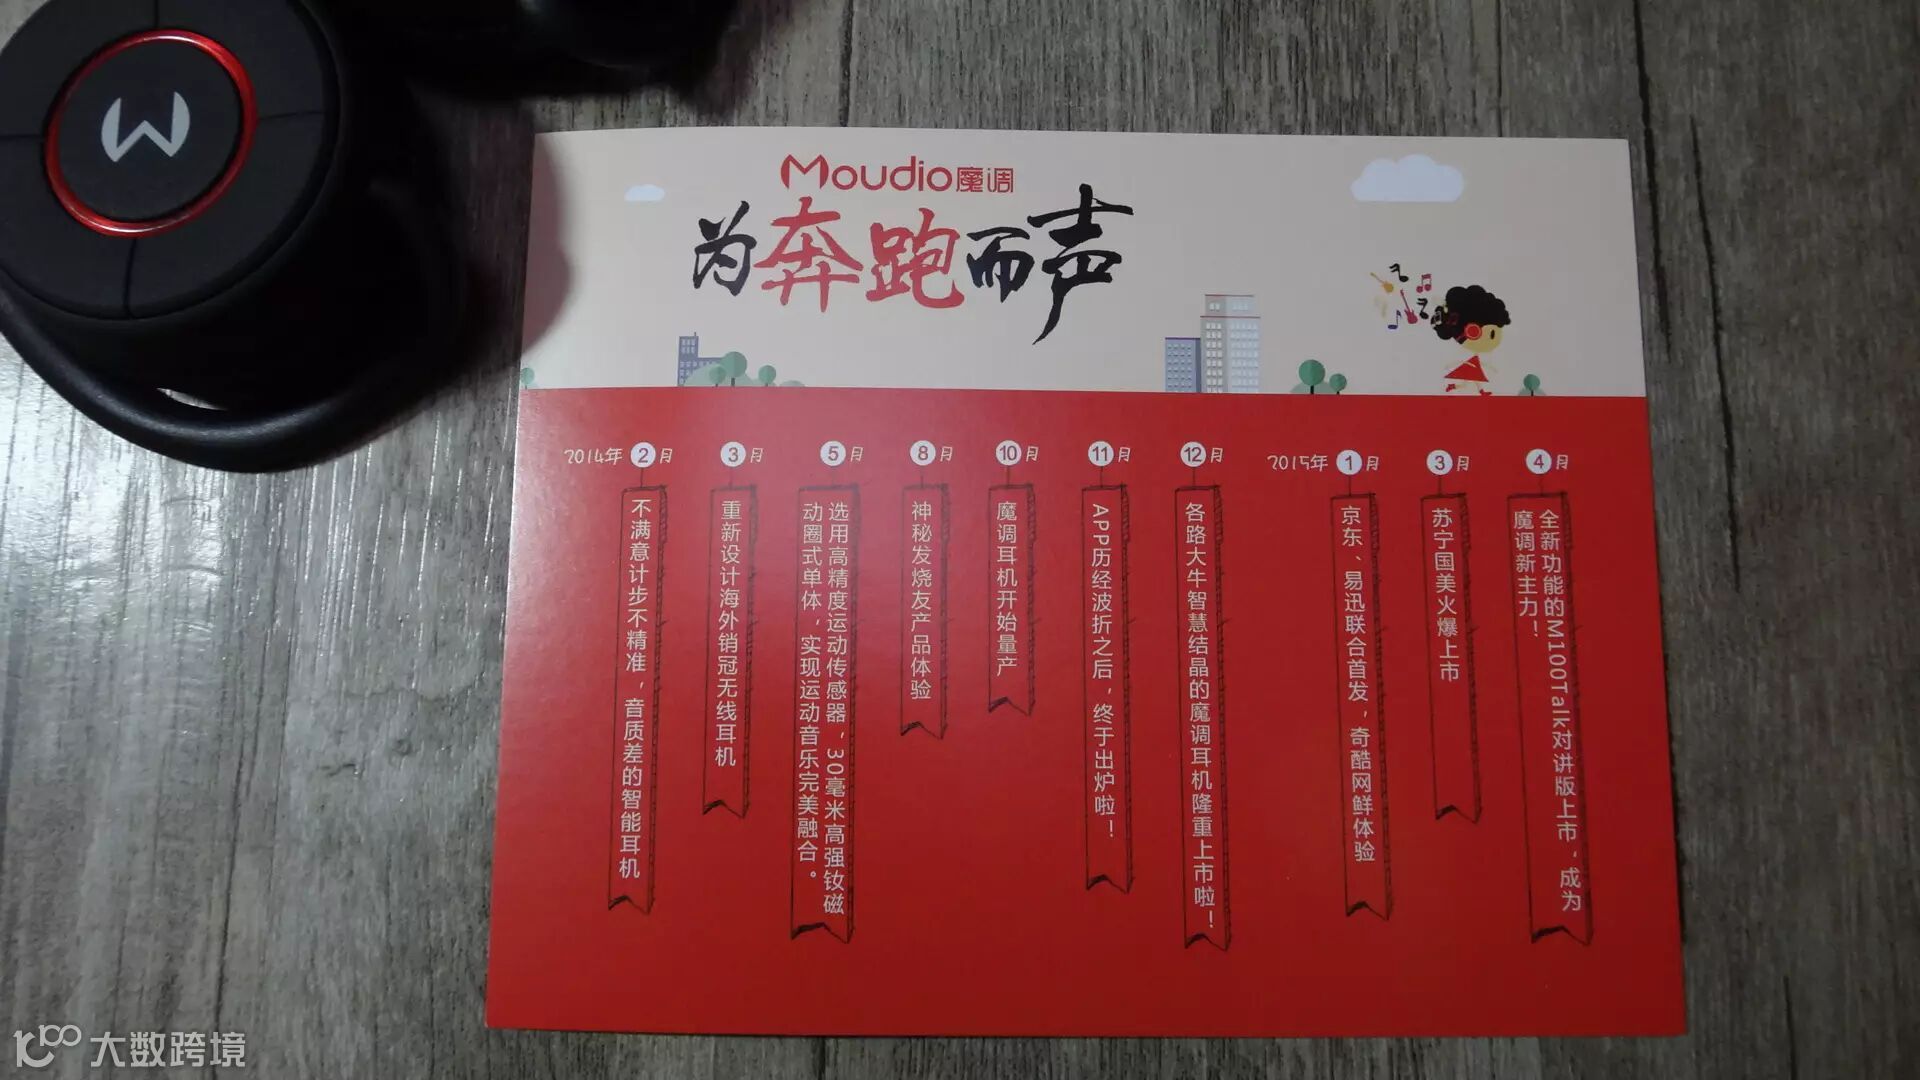 Moudio魔调
为奔跑而声
2014年 2月
不满意计步不精准，音质差的智能耳机
3月
重新设计海外销冠无线耳机
5月
选用高精度运动传感器，30毫米高强钕磁
动圈式单体，实现运动音乐完美融合。
8月
神秘发烧友产品体验
10月
魔调耳机开始量产
11月
APP历经波折之后，终于出炉啦！
12月
各路大牛智慧结晶的魔调耳机隆重上市啦！
2015年 1月
京东、易迅联合首发，奇酷网鲜体验
3月
苏宁国美火爆上市
4月
全新功能的M100Talk对讲版上市，成为
魔调新主力！
大数跨境